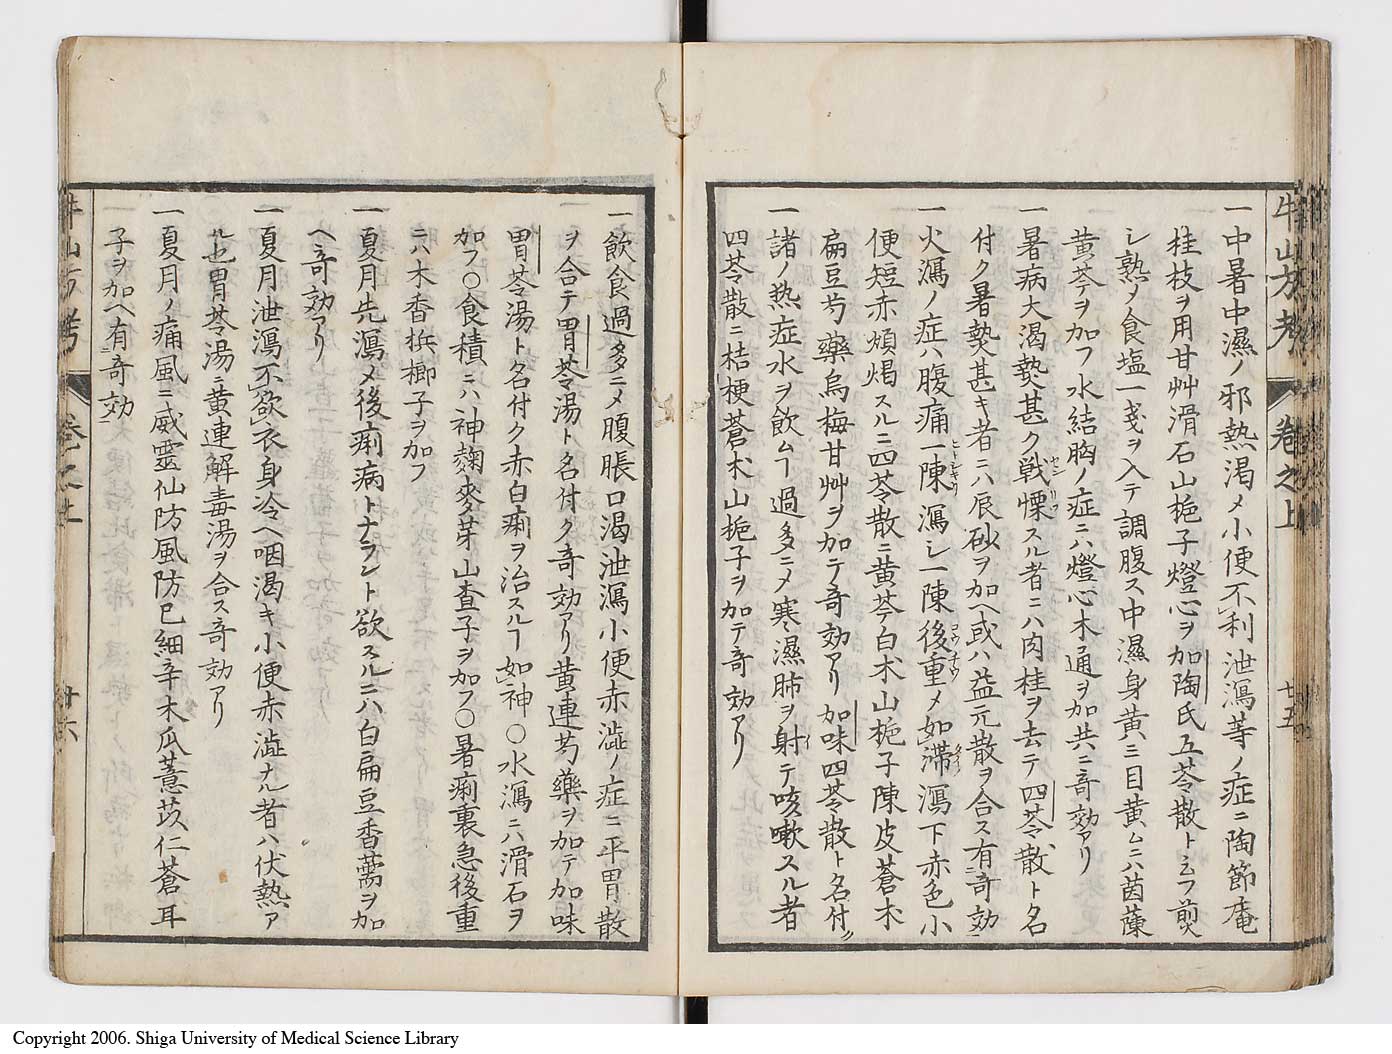 牛山方考 卷之上 廿五
一中暑中濕ノ邪熱渴〆小便不利泄瀉等ノ症ニ陶節庵
桂枝ヲ用甘艸滑石山梔子燈心ヲ加陶氏五苓散ト云フ煎
シ熟ノ食塩一戔ヲ入テ調腹ス中濕身黄ニ目黄ムニハ茵蔯
黄芩ヲ加フ水結胸ノ症ニハ燈心木通ヲ加共ニ竒効アリ
一暑病大渴𤍠甚ク戦慄スル者ニハ肉桂ヲ去テ四苓散ト名
付ク暑𤍠甚キ者ニハ辰砂ヲ加ヘ或ハ益元散ヲ合ス有竒効
一火瀉ノ症ハ腹痛一陳瀉シ一陳後重〆如滞瀉下赤色小
便短赤煩渴スルニ四苓散ニ黄芩白朮山梔子陳皮蒼朮
扁豆芍藥烏梅甘艸ヲ加テ竒効アリ加味四苓散ト名付
一諸ノ热症水ヲ飲ムヿ過多ニ〆寒濕肺ヲ射テ咳嗽スル者
四苓散ニ桔梗蒼朮山梔子ヲ加テ竒効アリ
一飲食過多ニ〆腹脹口渴泄瀉小便赤澁ノ症ニ平胃散
ヲ合テ胃苓湯ト名付ク竒効アリ黄連芍藥ヲ加テ加味
胃苓湯ト名付ク赤白痢ヲ治スルヿ如神○水瀉ニハ滑石ヲ
加フ○食積ニハ神麴麥芽山査子ヲ加フ○暑痢裏急後重
ニハ木香梹榔子ヲ加フ
一夏月先瀉〆後痢病トナラント欲スルニハ白扁豆香薷ヲ加
ヘ竒効アリ
一夏月泄瀉不欲衣身冷ヘ咽渴キ小便赤澁ナル者ハ伏熱ア
ル也胃苓湯ニ黄連解毒湯ヲ合ス竒効アリ
一夏月ノ痛風ニ威靈仙防風防已細辛木瓜薏苡仁蒼耳
子ヲ加ヘ有竒効
牛山方考 卷之上 廿六
Copyright 2006. Shiga University of Medical Science Library